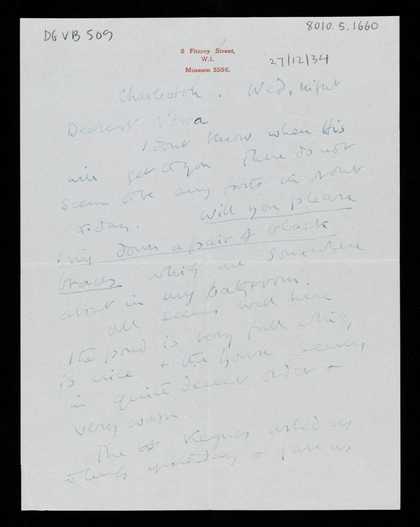 DG VB 509
8010.5.1660
8 Fitzroy Street,
W.1.
Museum 5596.
27/12/34
Charleston. Wed, night
Dearest
I dont know when this
will get to you There do not
seem to be any posts in or out
today. Will you please
bring down a pair of black
braces which are somewhere
about in my bathroom.
all seems well here
The pond is very full which
is nice + the house
in quite decent order +
very warm
The Keynes asked us
to yesterday + gave us